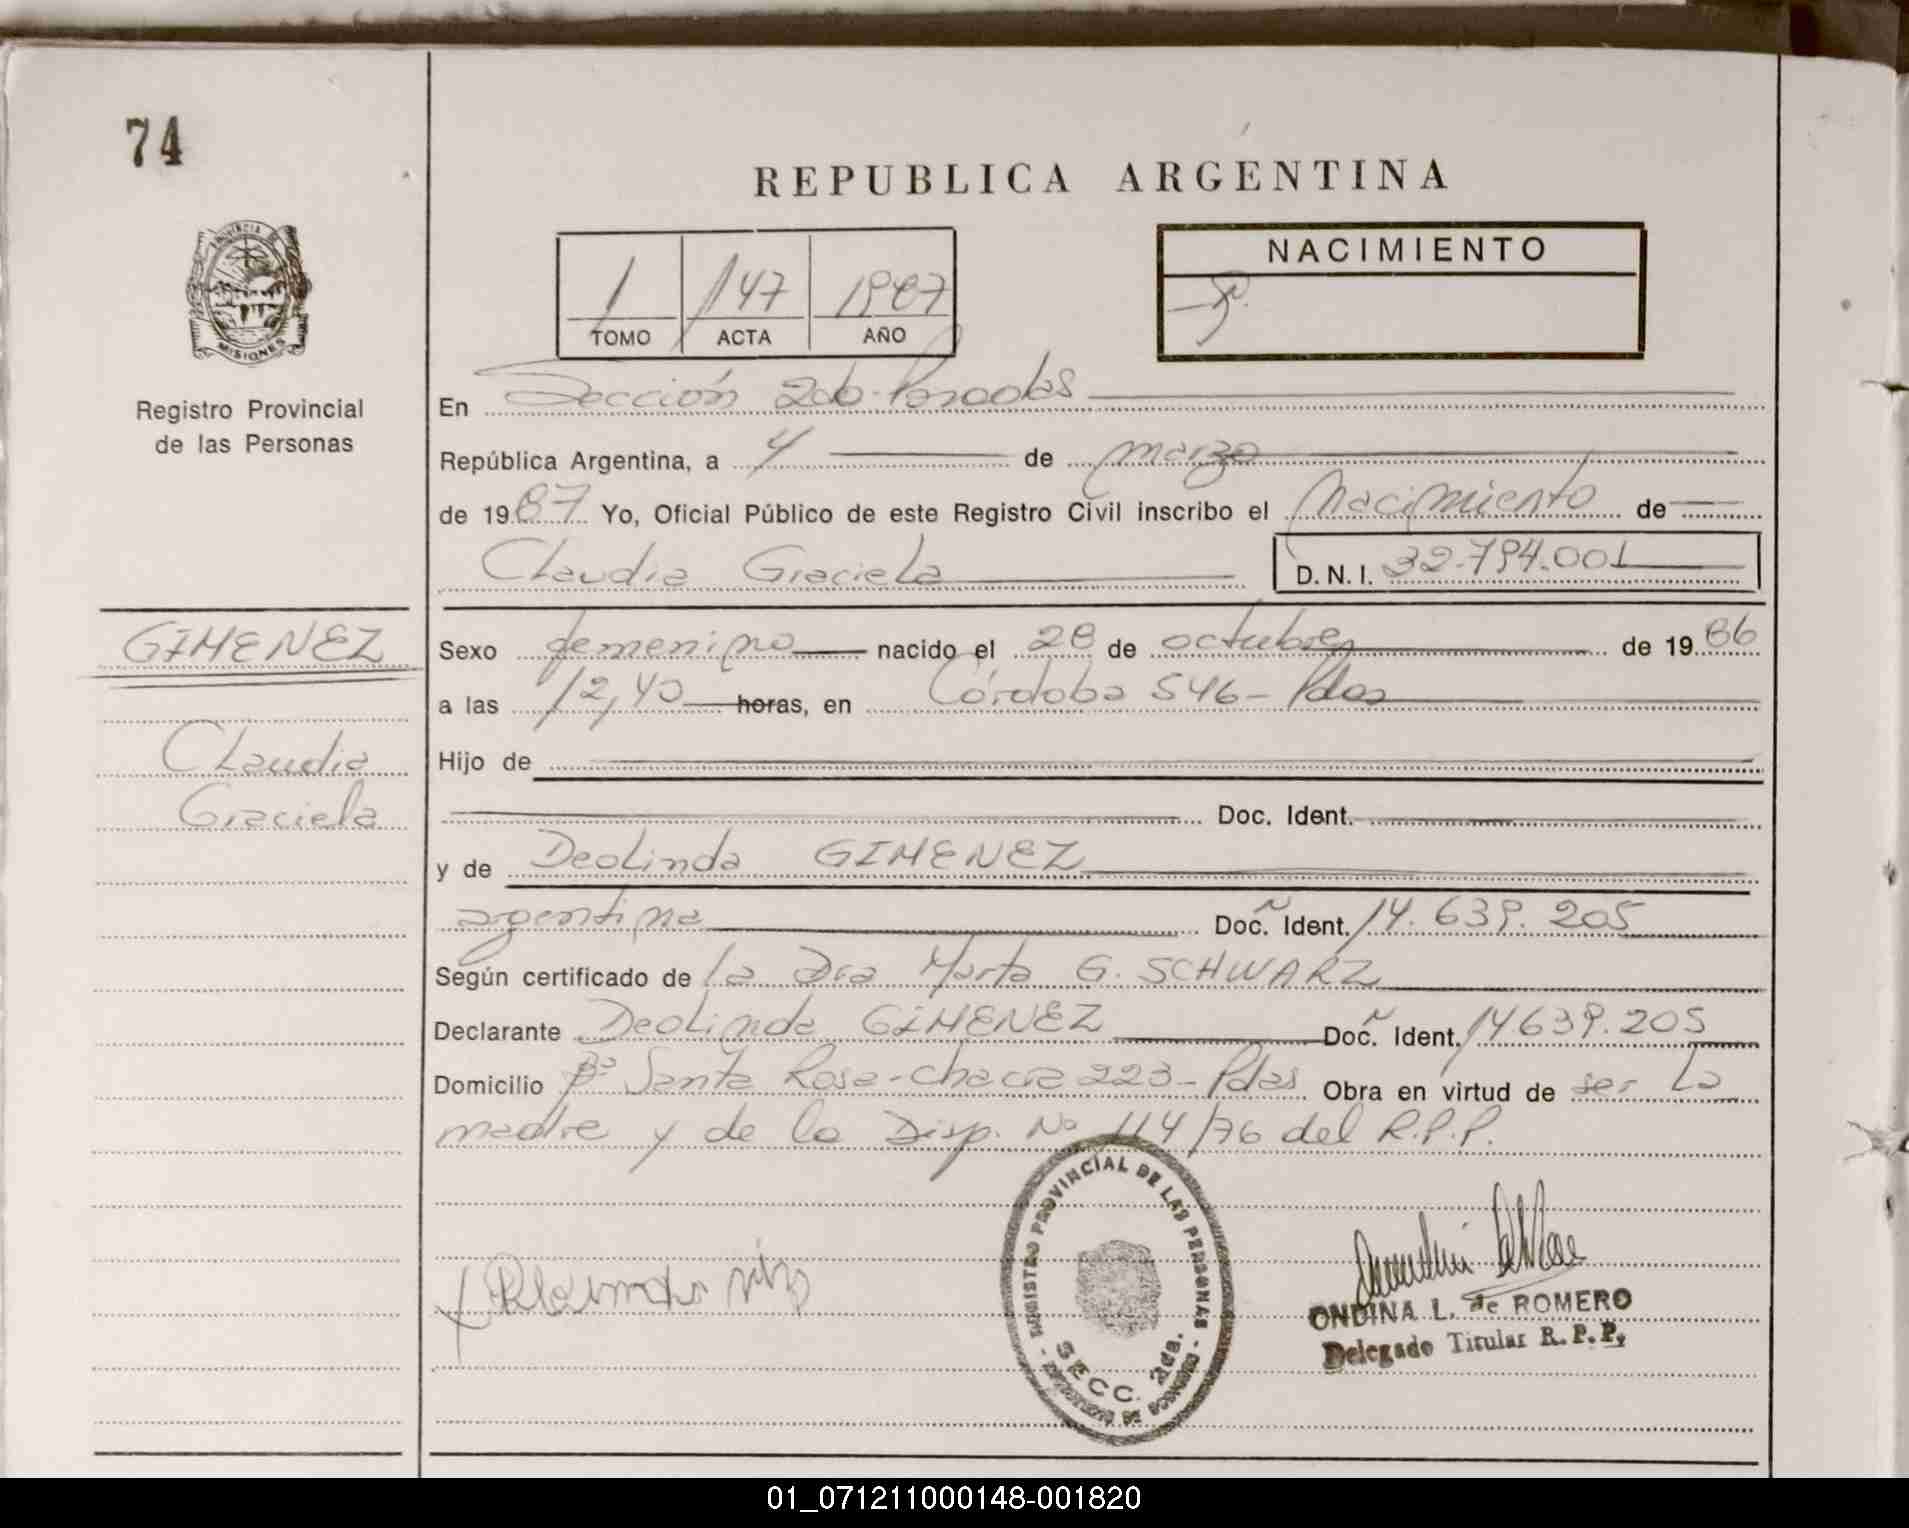 74
REPUBLICA ARGENTINA
PROVINCIA DE
MISIONES
Registro Provincial
de las Personas
1 147 1987
TOMO ACTA AÑO
NACIMIENTO
En Sección 2da. Posadas
República Argentina, a 4 de marzo
de 1987 Yo, Oficial Público de este Registro Civil inscribo el Nacimiento de
Claudia Graciela D.N.I. 32.794.001
GIMENEZ
Claudia
Graciela
Sexo femenino nacido el 28 de octubre de 1986
a las 12,40 horas, en Córdoba 546 - Pdas
Hijo de
Doc. Ident.
y de Deolinda GIMENEZ
argentina Doc. Ident. 14.639.205
Según certificado de la Dra Marta G. SCHWARZ
Declarante Deolinda GIMENEZ Doc. Ident. 14.639.205
Domicilio Bº Santa Rosa - chacra 223 - Pdas Obra en virtud de ser La
madre y de la Disp. Nº 114/76 del R.P.P.
REGISTRO PROVINCIAL DE LAS PERSONAS
SECC. 2da.
ONDINA L. de ROMERO
Delegado Titular R. P. P.
01_071211000148-001820